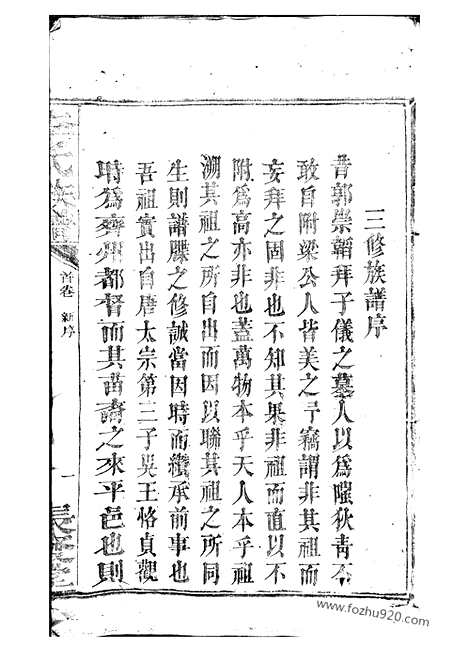 三修族譜序
昔郭崇韜拜子儀之墓人以爲嗤狄青不
敢自附梁公人皆美之予竊謂非其祖而
妄拜之固非也不知其果非祖而直以不
附爲高亦非也蓋萬物本乎天人本乎祖
溯其祖之所自出而因以聯其祖之所同
生則譜牒之修誠當因時而纘承前事也
吾祖實出自唐太宗第三子吳王恪貞觀
時爲齊州都督而其苗裔之來平邑也則
氏族譜
首卷 新序
一
www.fozhu920.com